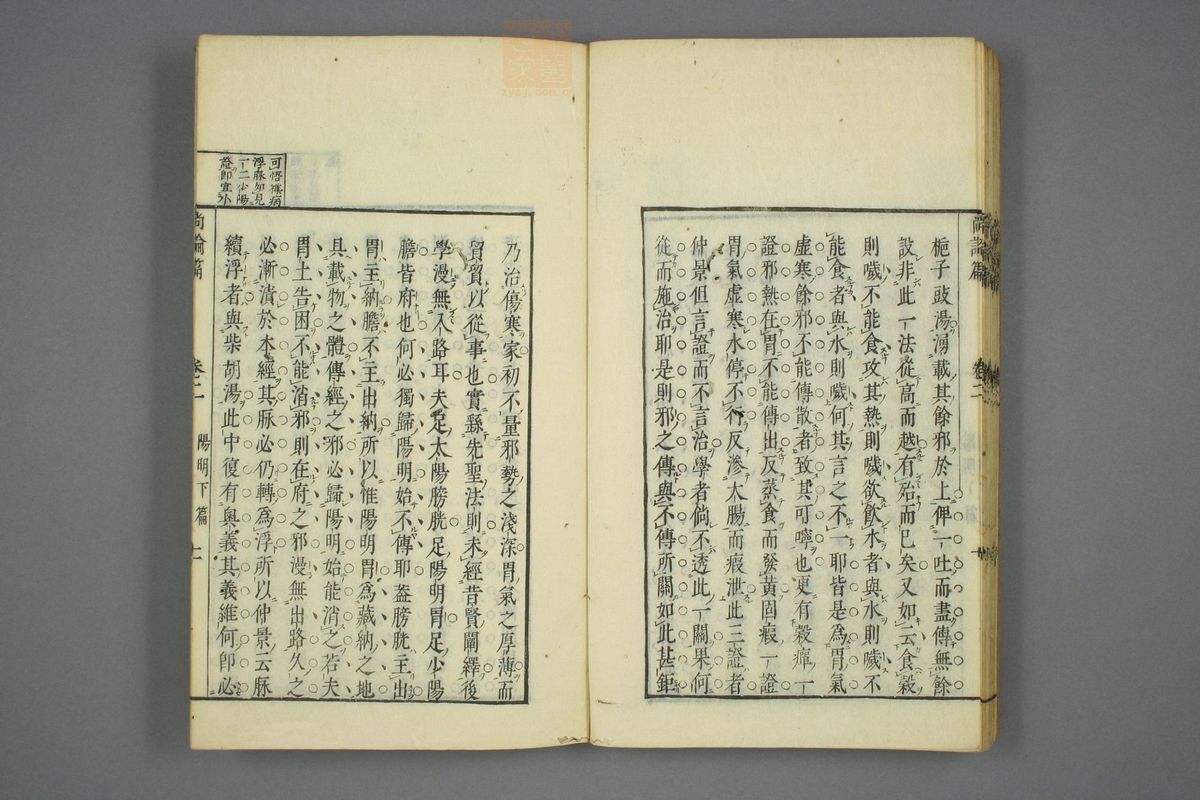 梔子豉湯湧載其餘邪於上俾一吐而盡傳無餘
設非此一法從高而越有殆而已矣又如云食穀
則噦不能食攻其熱則噦欲飲水者與水則噦不
能食者與水則噦何其言之不一耶皆是爲胃氣
虛寒餘邪不能傳散者致其可嚀也更有穀癉一
證邪熱在胃不能傳出反蒸食而發黃固瘕一證
胃氣虛寒水停不行反滲大腸而瘕泄此三證者
仲景但言證而不言治學者倘不透此一關果何
從而施治耶是則邪之傳與不傳所關如此甚鉅
乃治傷寒家初不量邪勢之淺深胃氣之厚薄而
貿貿以從事也實繇先聖法則未經昔賢闡繹後
學漫無入路耳夫足太陽膀胱足陽明胃足少陽
膽皆府也何必獨歸陽明始不傳耶葢膀胱主出
胃主納膽不主出納所以惟陽明胃爲藏納之地
具載物之體傳經之邪必歸陽明始能消之若夫
胃土告困不能消邪則在府之邪漫無出路久之
必漸潰於本經其脉必仍轉爲浮所以仲景云脉
續浮者與柴胡湯此中復有奧義其義維何卽必
尚論篇
卷二
陽明下篇
二
可悟舊病
浮脉如見
一二少陽
證卽宜小
尚論篇
卷二
zysj.com.cn